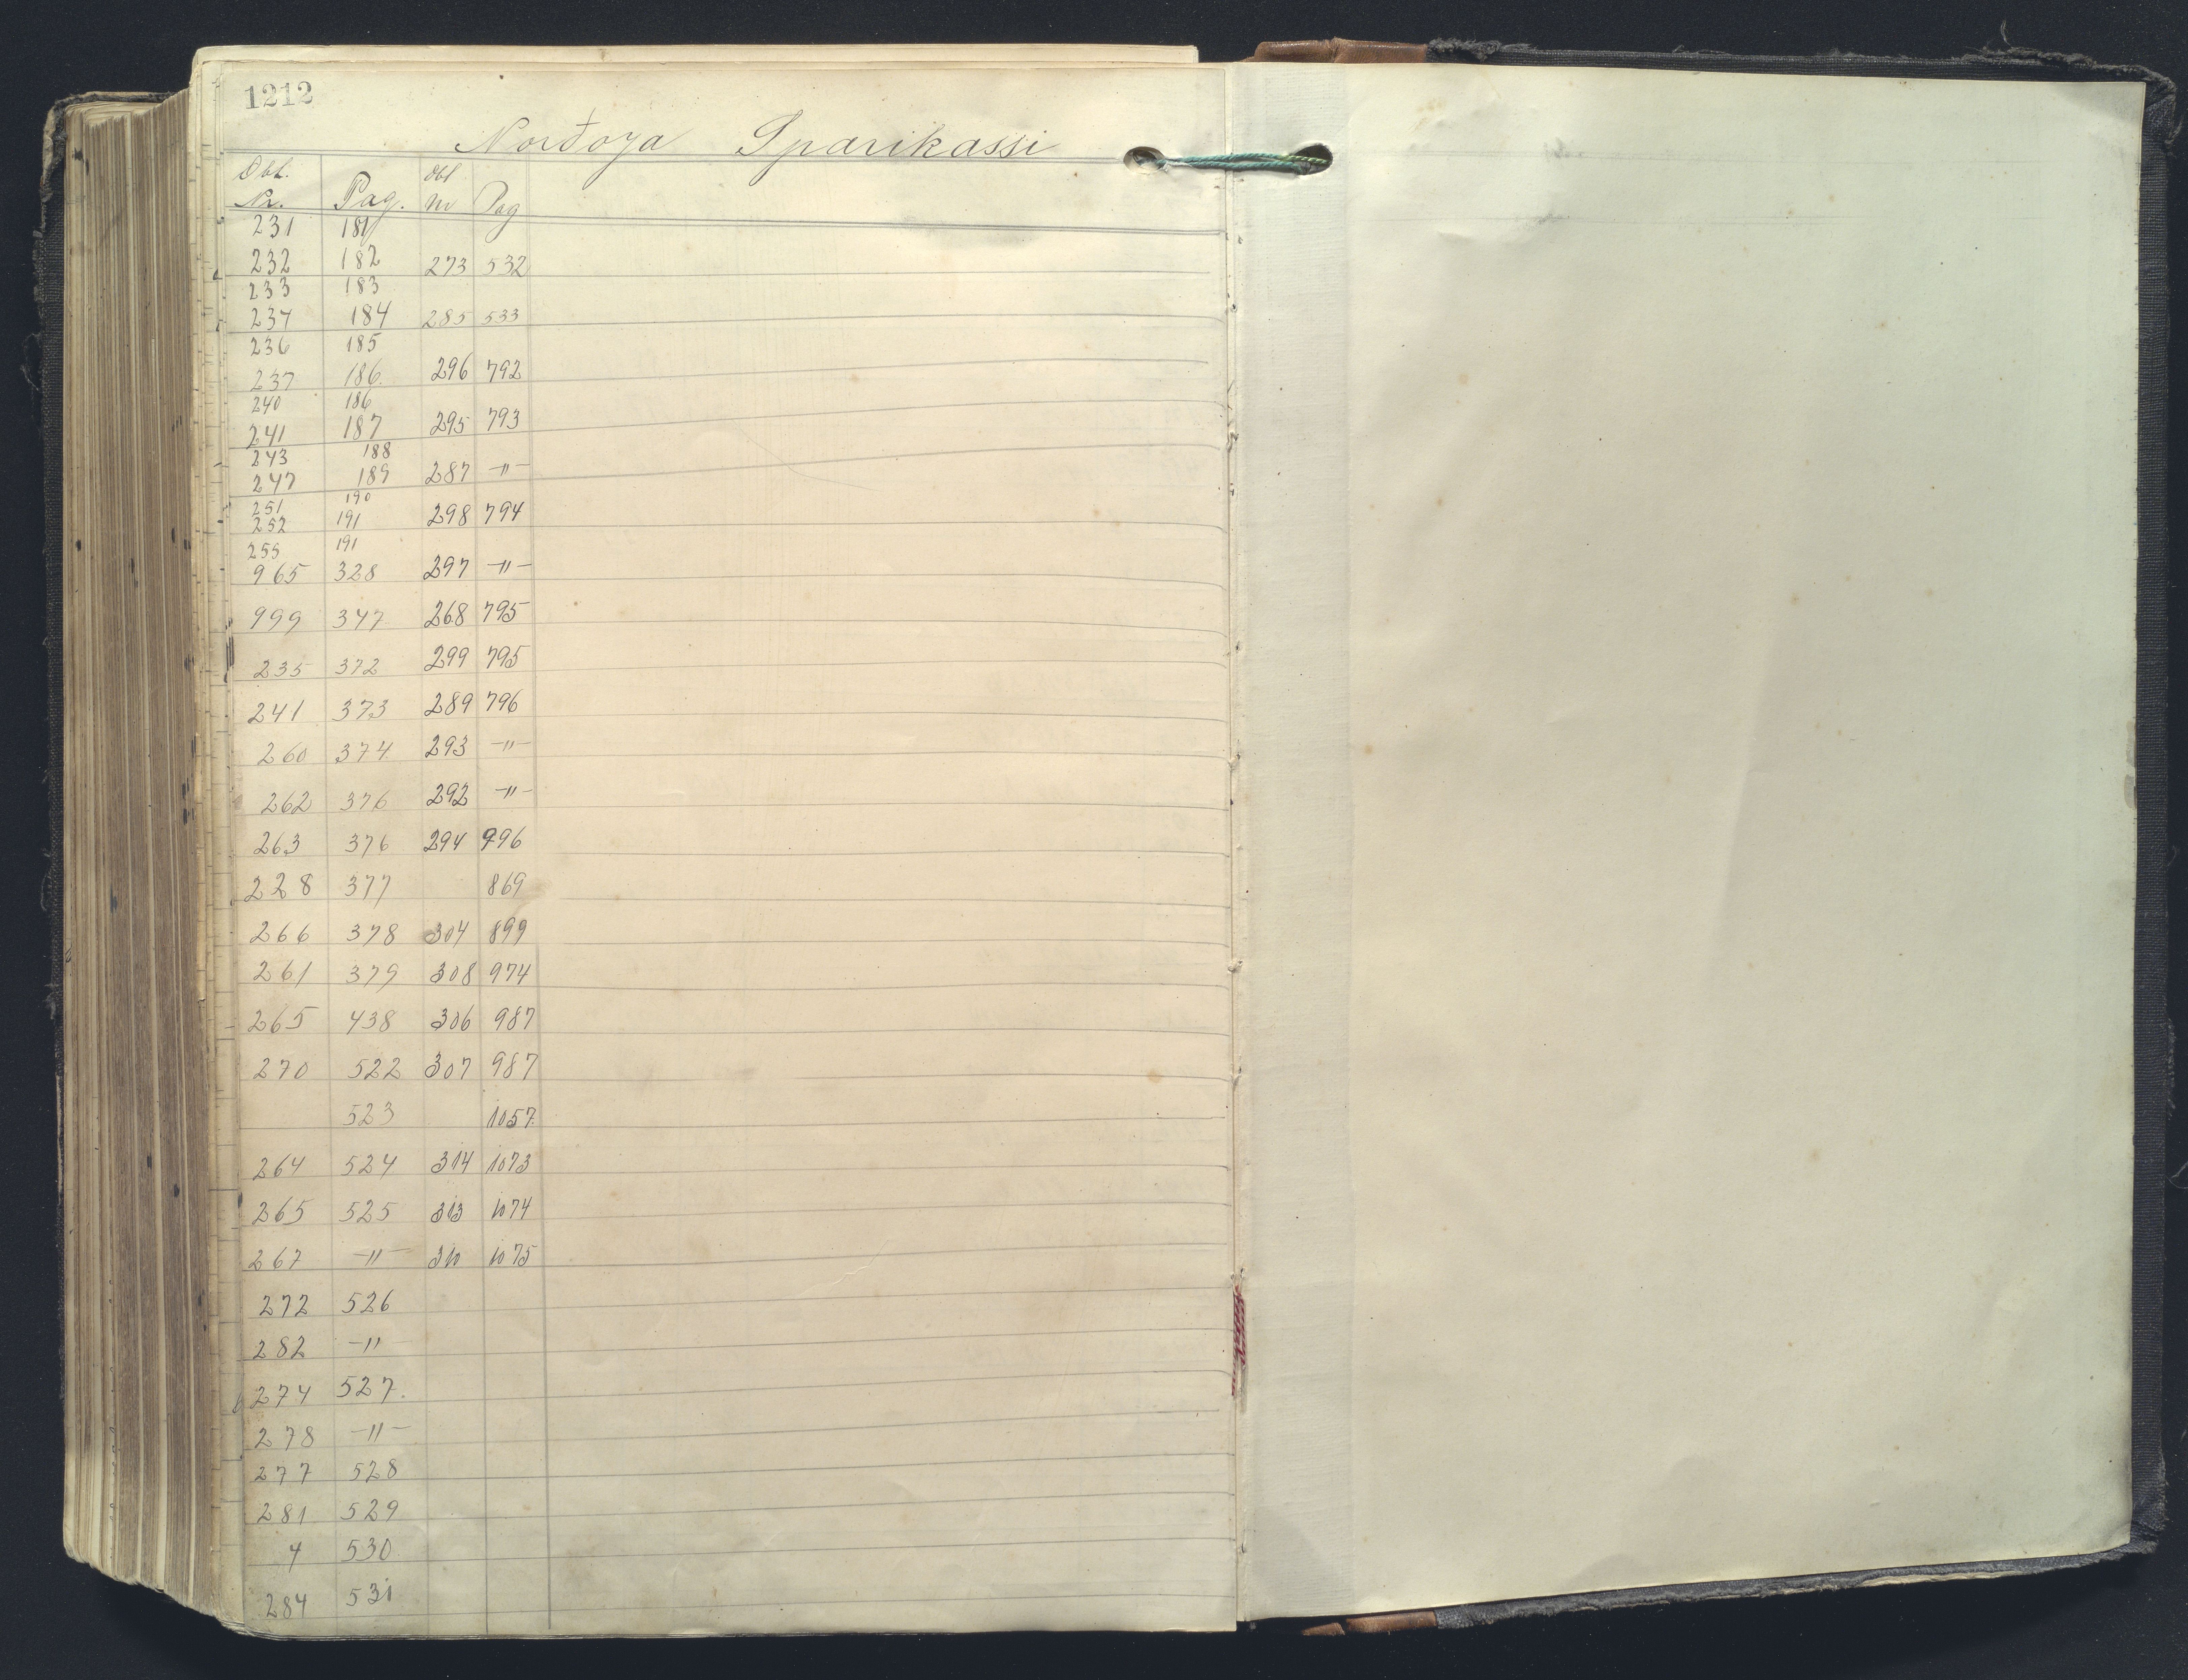 1212
Norđoya Sparikassi
Obl. Obl
Nr. Pag. Nr Pag
231 181
232 182 273 532
233 183
234 184 285 533
236 185
237 186. 296 792
240 186
241 187 295 793
243 188
247 189 287 -"-
251 190
252 191 298 794
255 191
965 328 297 -"-
999 347 268 795
235 372 299 795
241 373 289 796
260 374 293 -"-
262 376 292 -"-
263 376 294 996
228 377 869
266 378 304 899
261 379 308 974
265 438 306 987
270 522 307 987
523 1057.
264 524 314 1073
265 525 313 1074
267 -"- 310 1075
272 526
282 -"
274 527.
278 -"-
277 528
281 529
4 530
284 531